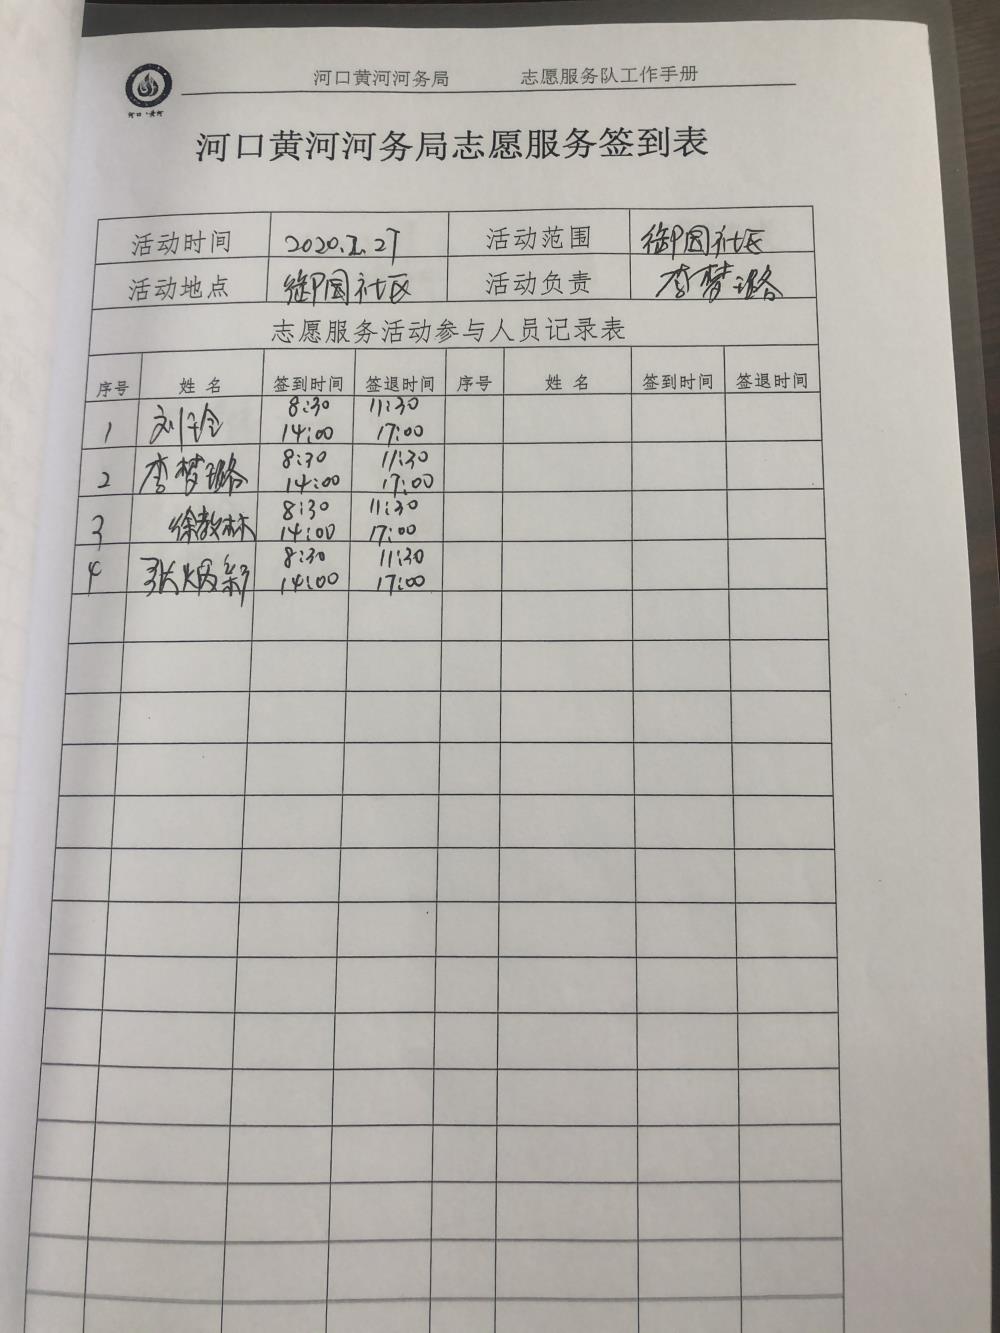 河口·黄河
河口黄河河务局 志愿服务队工作手册
河口黄河河务局志愿服务签到表
活动时间 2020.2.27 活动范围 御园社区
活动地点 御园社区 活动负责 李梦璐
志愿服务活动参与人员记录表
序号 姓名 签到时间 签退时间 序号 姓名 签到时间 签退时间
1 8:30 11:30
14:00 17:00
2 李梦璐 8:30 11:30
14:00 17:00
3 徐教林 8:30 11:30
14:00 17:00
4 8:30 11:30
14:00 17:00